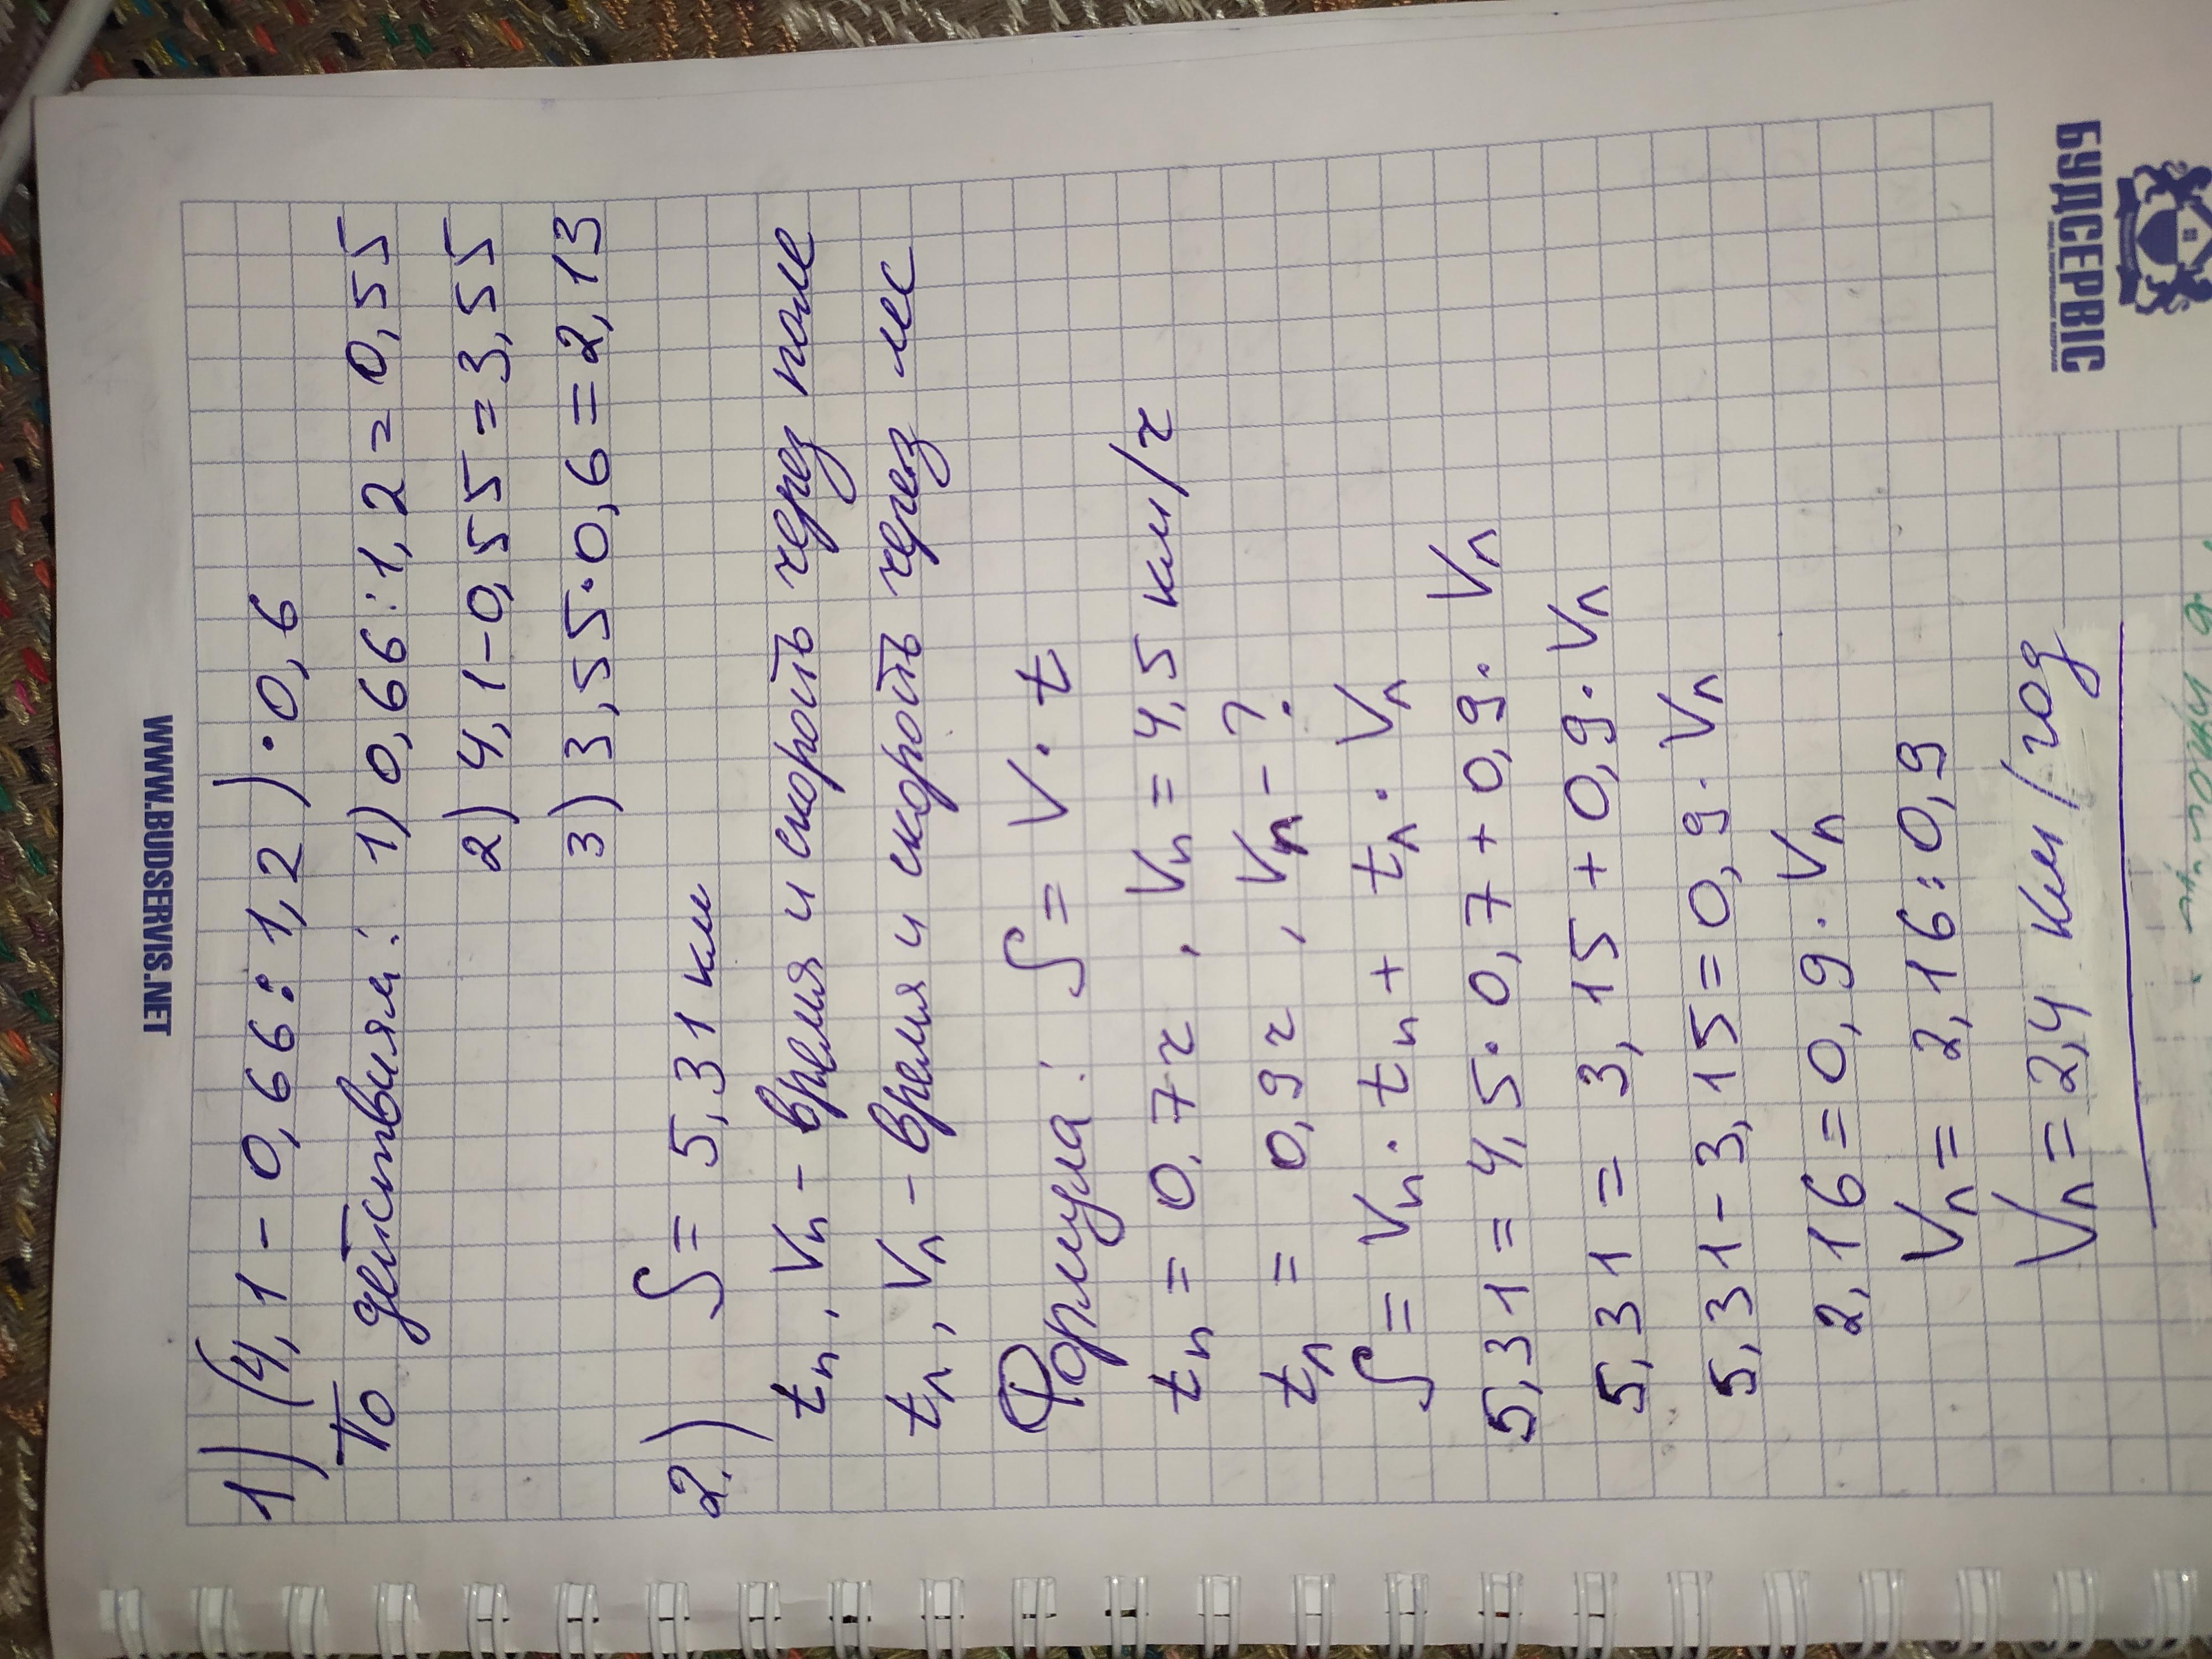 WWW.BUDSERVIS.NET
1) (4,1 - 0,66 : 1,2) · 0,6
По действиям: 1) 0,66 : 1,2 = 0,55
2) 4,1 - 0,55 = 3,55
3) 3,55 · 0,6 = 2,13
2.) S = 5,31 км
tп, Vп - время и скорость через поле
tл, Vл - время и скорость через лес
Формула: S = V · t
tп = 0,7 ч, Vп = 4,5 км/ч
tл = 0,9 ч, Vл - ?
S = Vп · tп + tл · Vл
5,31 = 4,5 · 0,7 + 0,9 · Vл
5,31 = 3,15 + 0,9 · Vл
5,31 - 3,15 = 0,9 · Vл
2,16 = 0,9 · Vл
Vл = 2,16 : 0,9
Vл = 2,4 км/год
БУДСЕРВІС